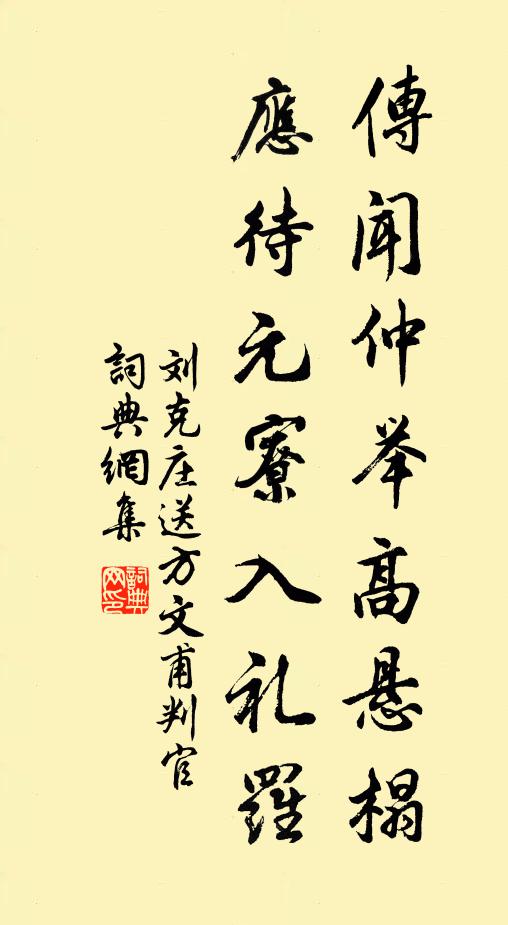 傳闻仲举高悬榻
應待元寮入礼羅
刘克庄送方文甫判官
詞典網集
詞典網印